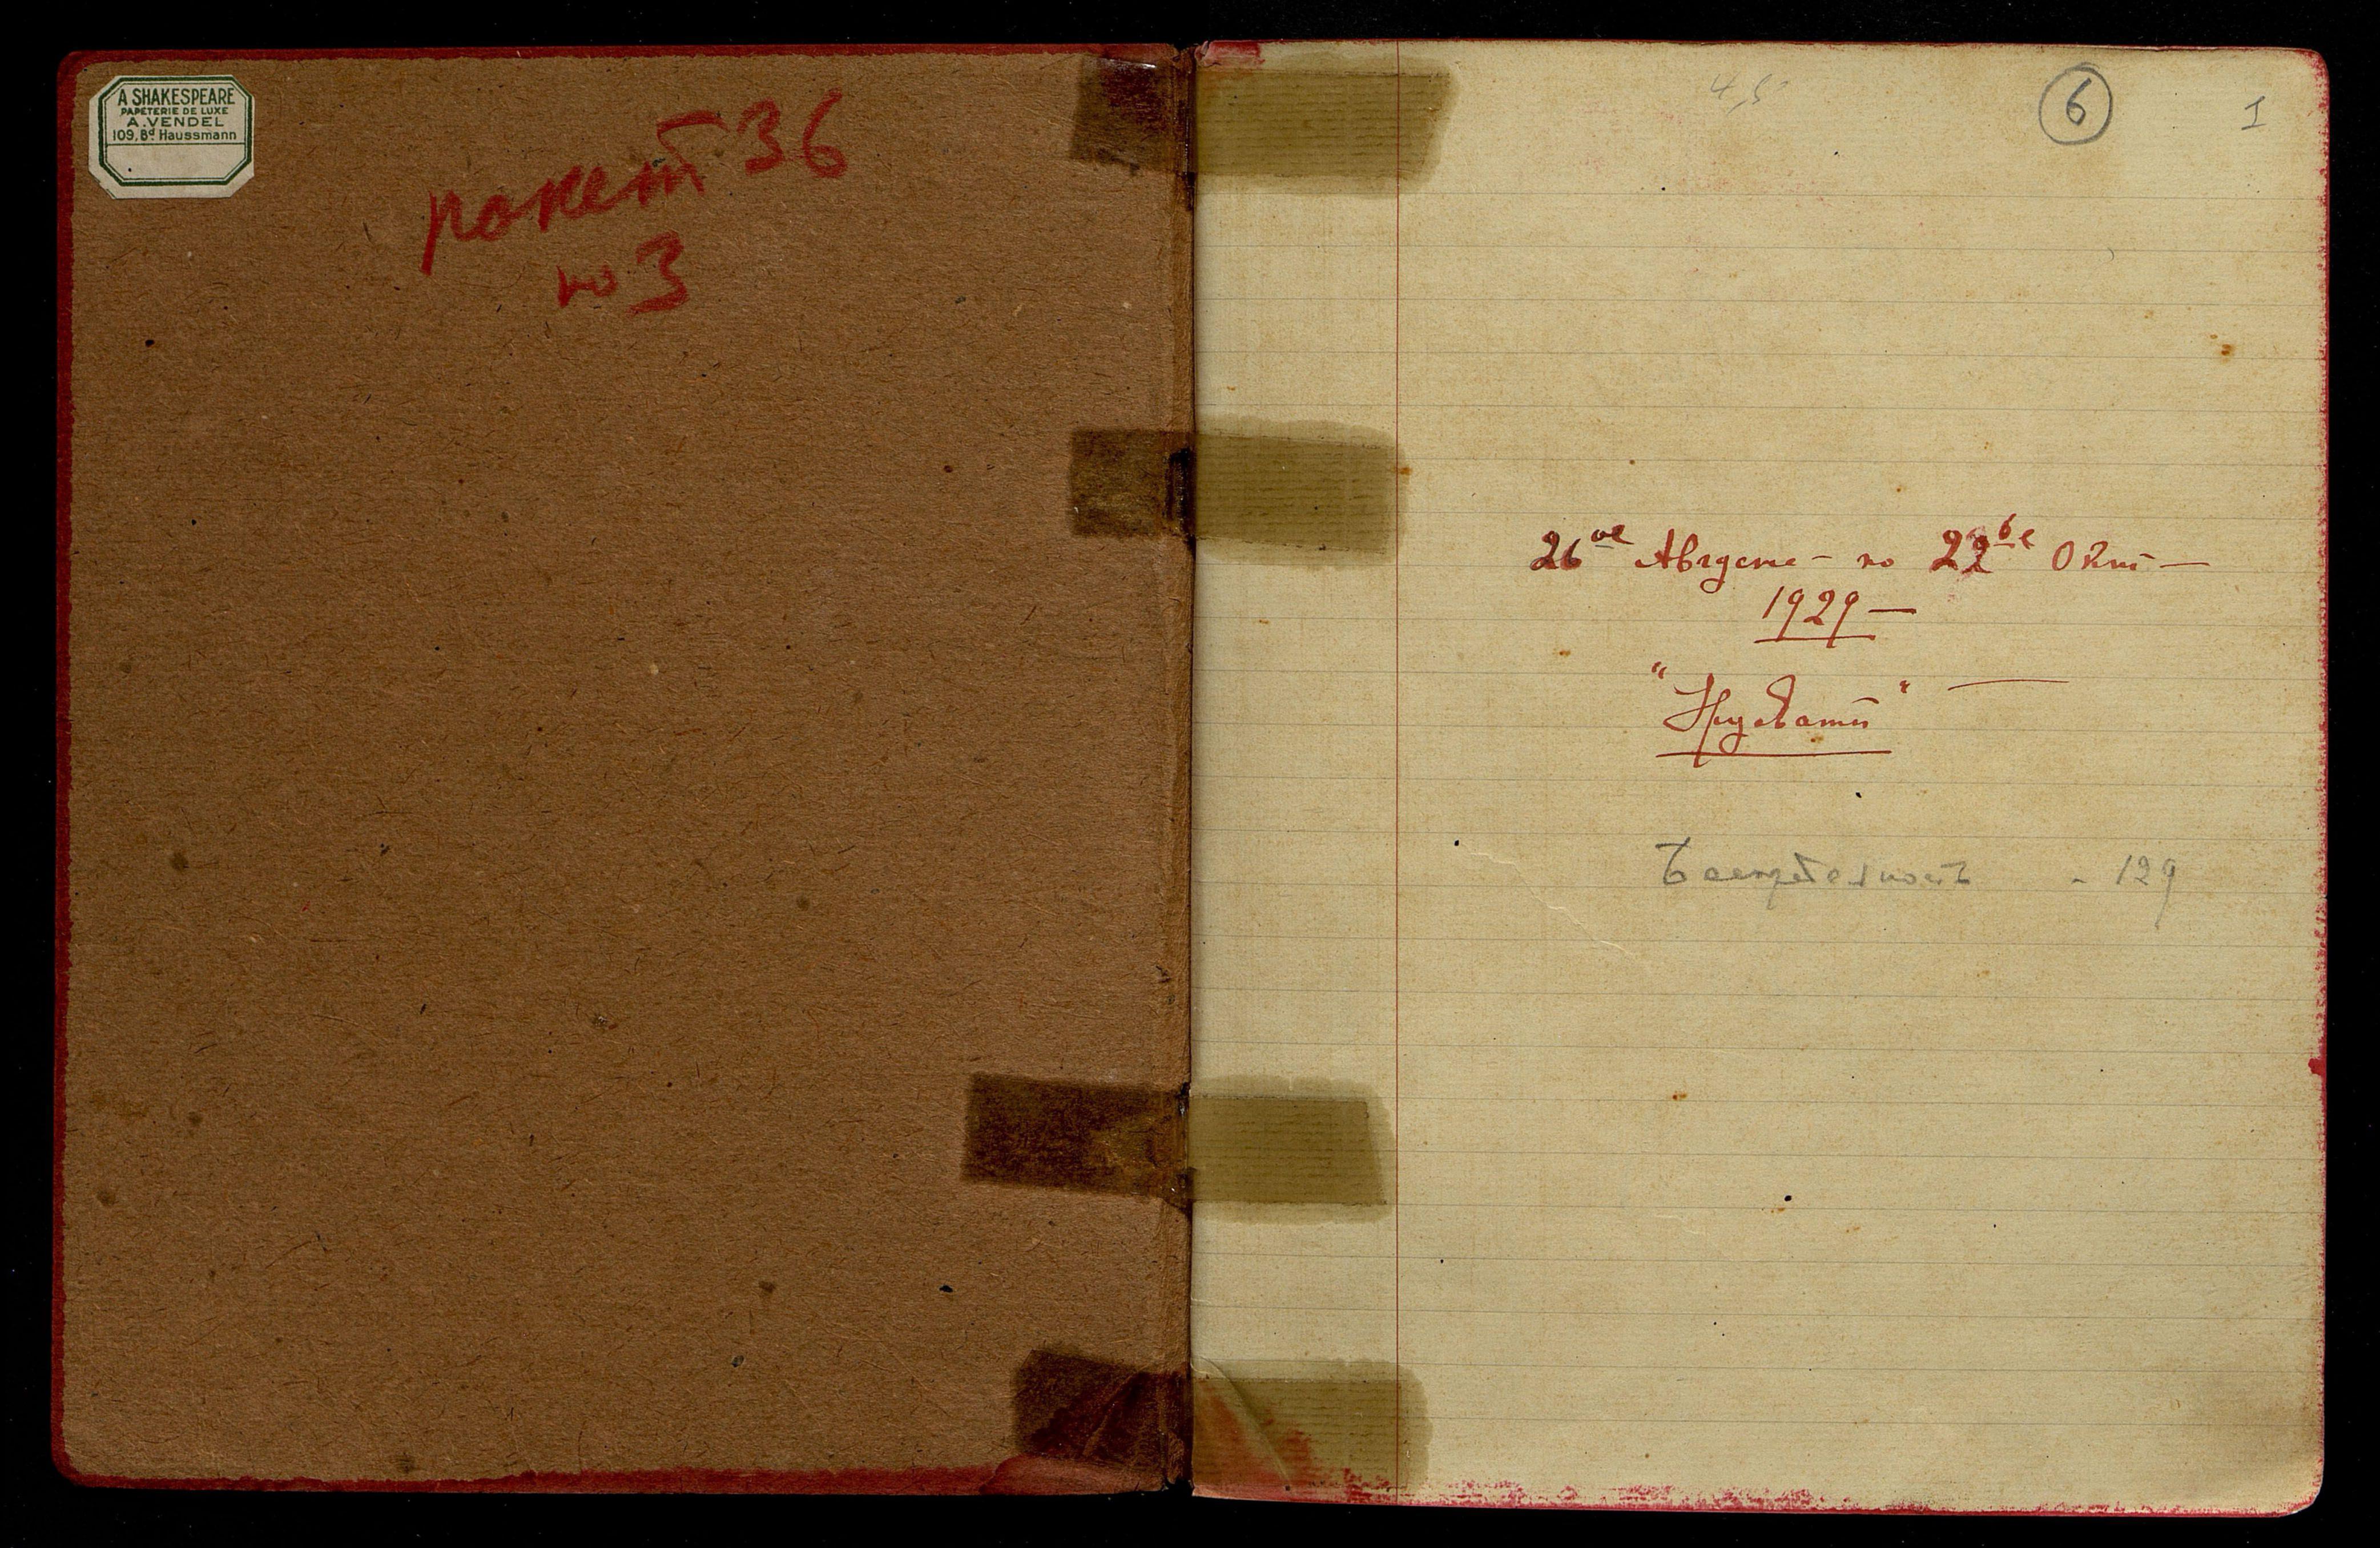 A SHAKESPEARE
PAPETERIE DE LUXE
A. VENDEL
109, Bd Haussmann
пакет 36
но 3
4,5
6
1
26ое Августа – по 22ое Окт —
1929 —
- 129